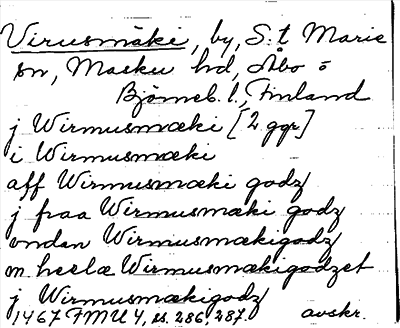 Virusmäki, by, S:t Marie
sn, Masku hd, Åbo o
Björneb. l., Finland
j Wirmusmæki [2 ggr]
i Wirmusmæki
aff Wirmusmæki godz
j fraa Wirmusmæki godz
vndan Wirmusmækigodz
m. heelæ Wirmusmækigodzet
j Wirmusmækigodz
1467 FMU 4, ss. 286, 287. avskr.